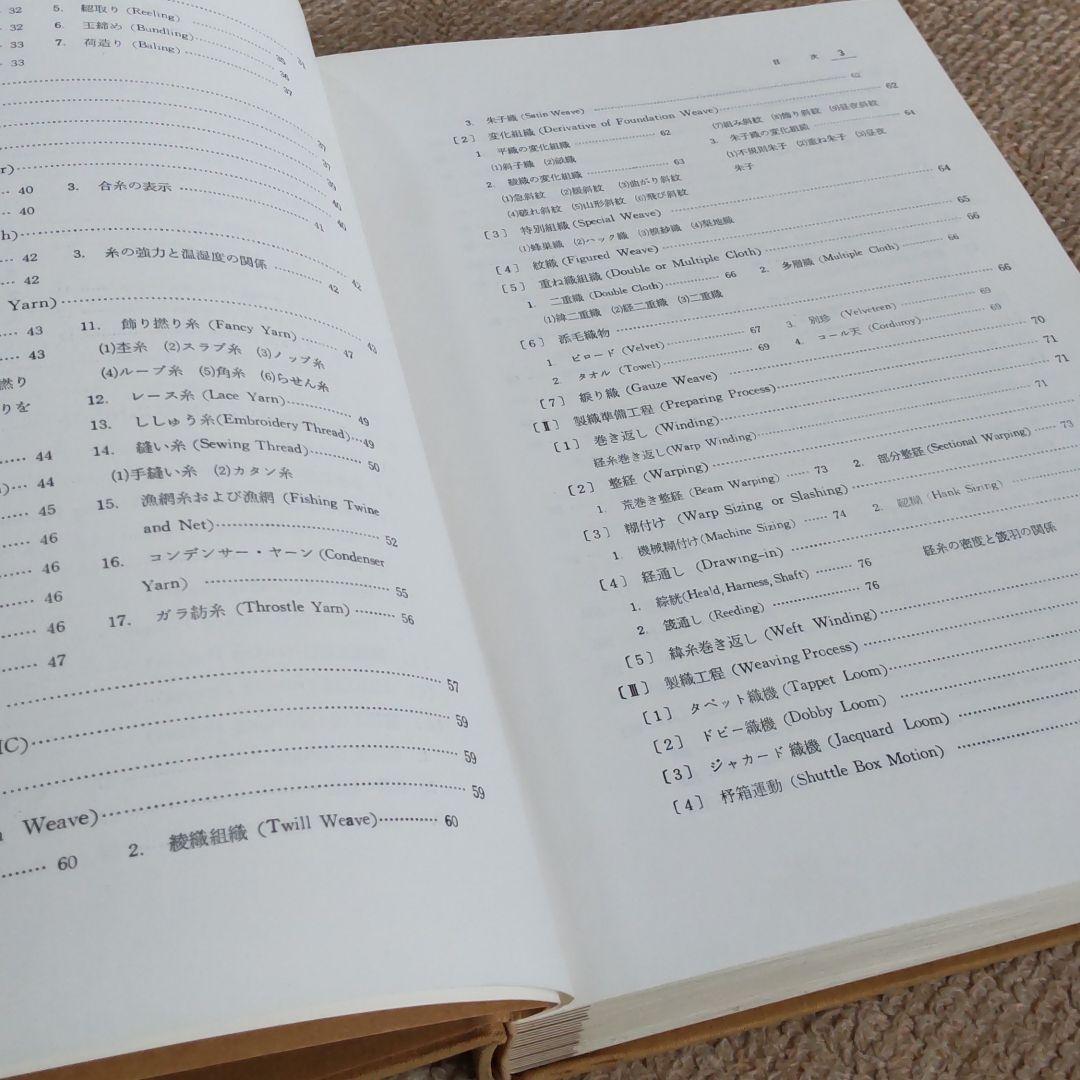 32 5. 綛取り (Reeling)
32 6. 玉締め (Bundling)
33 7. 荷造り (Baling)
33
35
36
37
37
37
39
40 3. 合糸の表示
40
40
41
42 3. 糸の強力と温湿度の関係
42
42
42
Yarn)
43 11. 飾り撚り糸 (Fancy Yarn)
43 (1)杢糸 (2)スラブ糸 (3)ノップ糸 47
撚り (4)ループ糸 (5)角糸 (6)らせん糸
りを 12. レース糸 (Lace Yarn)
13. ししゅう糸(Embroidery Thread) 49
44 14. 縫い糸 (Sewing Thread) 49
44 (1)手縫い糸 (2)カタン糸 50
45 15. 漁網糸および漁網 (Fishing Twine
46 and Net) 52
46 16. コンデンサー・ヤーン (Condenser
46 Yarn) 55
46 17. ガラ紡糸 (Throstle Yarn) 56
47
57
59
59
Weave) 59
60 2. 綾織組織 (Twill Weave) 60
目次 3
3. 朱子織 (Satin Weave) 62
[2] 変化組織 (Derivative of Foundation Weave) 62
1. 平織の変化組織 62 (7)組み斜紋 (8)飾り斜紋 (9)昼夜斜紋
(1)斜子織 (2)畝織 3. 朱子織の変化組織 64
2. 綾織の変化組織 63 (1)不規則朱子 (2)重ね朱子 (3)昼夜
(1)急斜紋 (2)緩斜紋 (3)曲がり斜紋 朱子
(4)破れ斜紋 (5)山形斜紋 (6)飛び斜紋
[3] 特別組織 (Special Weave) 64
(1)蜂巣織 (2)ハック織 (3)模紗織 (4)梨地織
[4] 紋織 (Figured Weave) 65
[5] 重ね織組織 (Double or Multiple Cloth) 66
1. 二重織 (Double Cloth) 66 2. 多層織 (Multiple Cloth) 66
(1)緯二重織 (2)経二重織 (3)二重織
[6] 添毛織物 66
1. ビロード (Velvet) 67 3. 別珍 (Velveteen) 69
2. タオル (Towel) 69 4. コール天 (Corduroy) 69
[7] 綟り織 (Gauze Weave) 70
[Ⅱ] 製織準備工程 (Preparing Process) 71
[1] 巻き返し (Winding) 71
経糸巻き返し(Warp Winding) 71
[2] 整経 (Warping)
1. 荒巻き整経 (Beam Warping) 73 2. 部分整経 (Sectional Warping) 73
[3] 糊付け (Warp Sizing or Slashing)
1. 機械糊付け(Machine Sizing) 74 2. 綛糊 (Hank Sizing)
[4] 経通し (Drawing-in)
1. 綜絖(Heald, Harness, Shaft) 76 経糸の密度と筬羽の関係
2. 筬通し (Reeding) 76
[5] 緯糸巻き返し (Weft Winding)
[Ⅲ] 製織工程 (Weaving Process)
[1] タペット織機 (Tappet Loom)
[2] ドビー織機 (Dobby Loom)
[3] ジャカード織機 (Jacquard Loom)
[4] 杼箱運動 (Shuttle Box Motion)